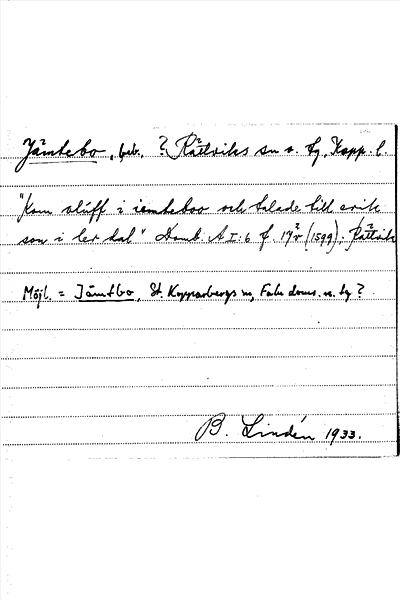 Jämtebo, beb., ? Rättviks sn o. tg, Kopp. l.
"Kom oluff i iemteboo och talade till erik
son i lerdal" Domb. A I:6 f. 19r (1599). Rättvik
Möjl. = Jämtbo, St. Kopparbergs sn, Falu doms. n. tg?
B. Lindén 1933.